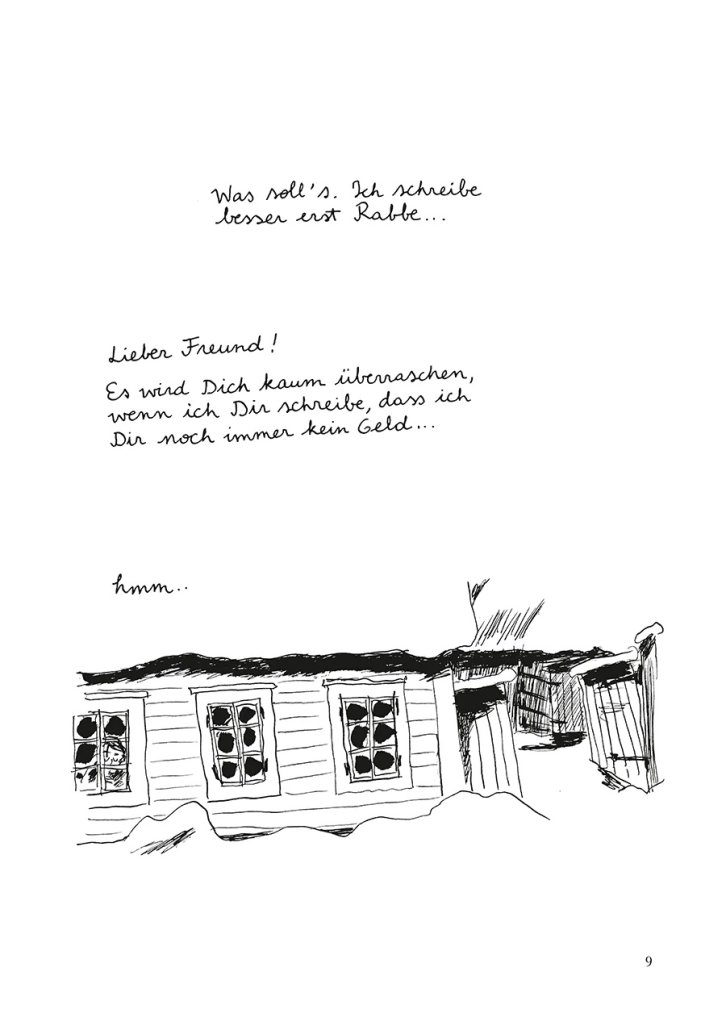 Was soll's. Ich schreibe
besser erst Rabbe...
Lieber Freund!
Es wird Dich kaum überraschen,
wenn ich Dir schreibe, dass ich
Dir noch immer kein Geld...
hmm..
9